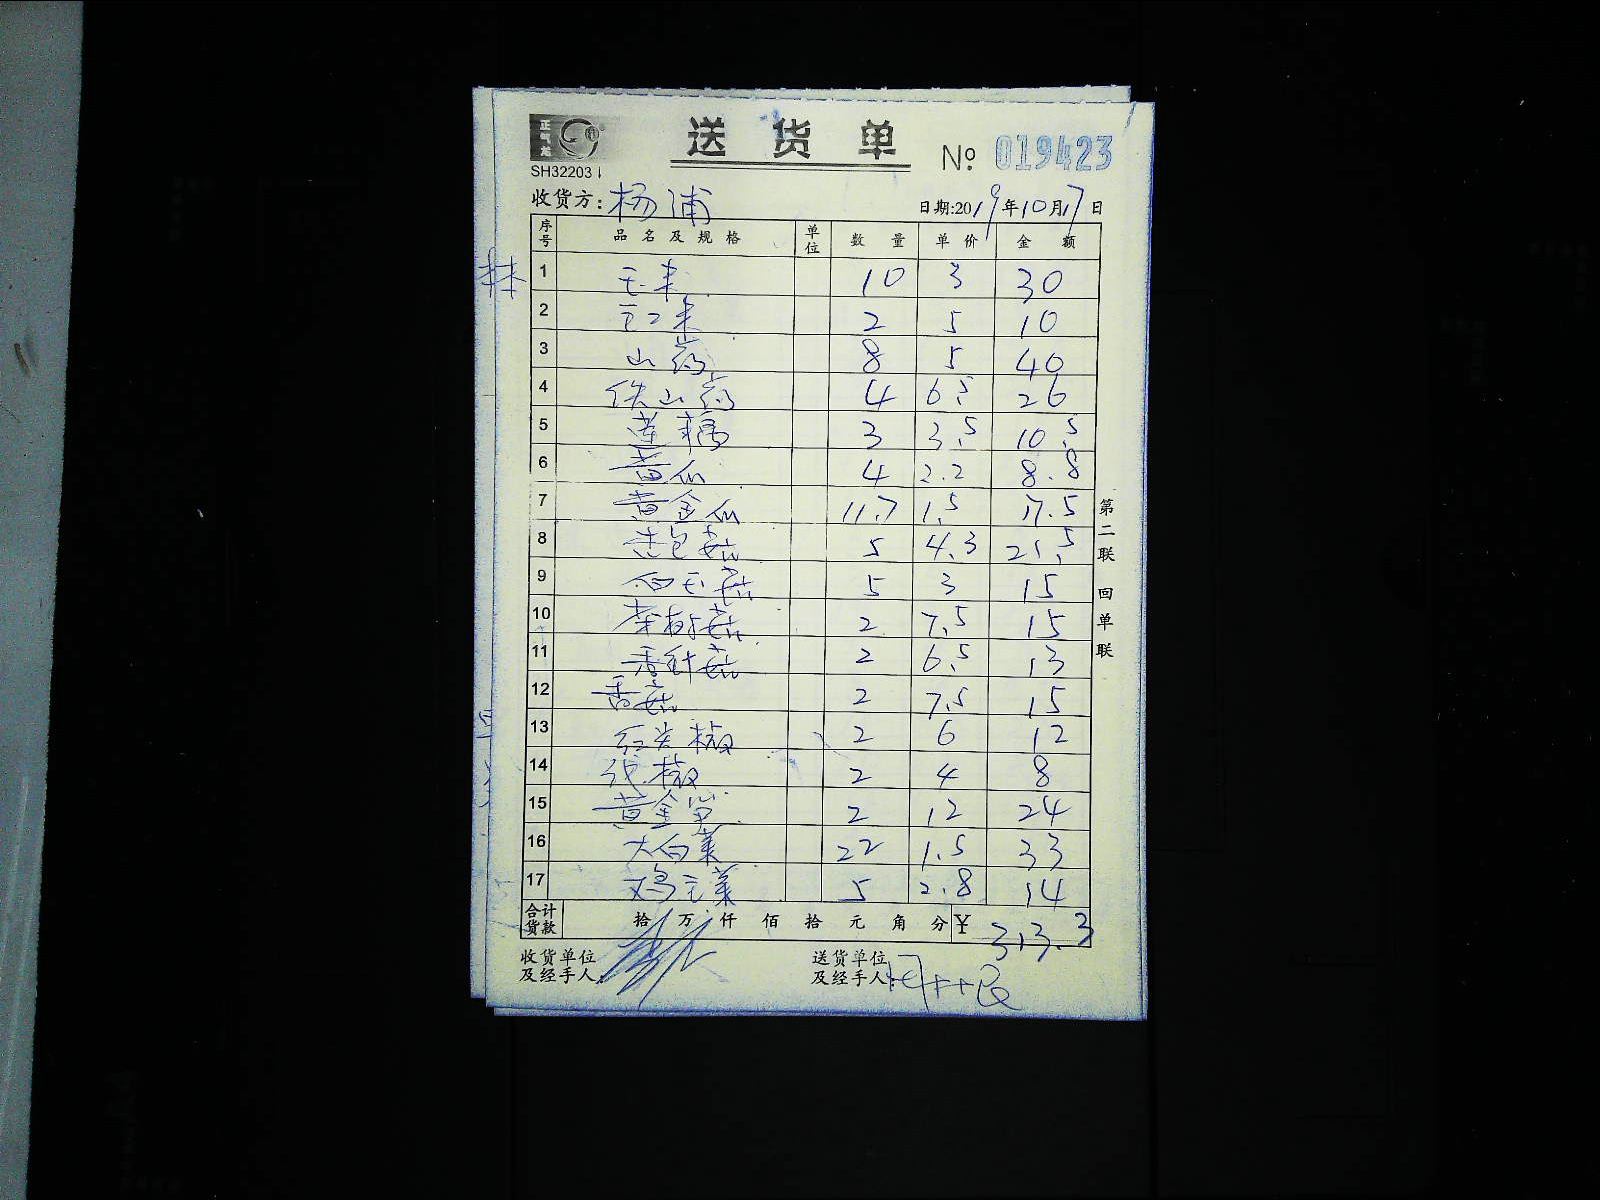 送货单
№ 019423
SH32203
收货方：杨浦
日期:2019年10月17日
序号 品名及规格 单位 数量 单价 金额
1 玉米 10 3 30
2 2 5 10
3 山药 8 5 40
4 铁山药 4 6.5 26
5 莲藕 3 3.5 10.5
6 黄瓜 4 2.2 8.8
7 黄金瓜 11.7 1.5 17.5
8 杏包菇 5 4.3 21.5
9 白玉菇 5 3 15
10 茶树菇 2 7.5 15
11 金针菇 2 6.5 13
12 香菇 2 7.5 15
13 红尖椒 2 6 12
14 线椒 2 4 8
15 黄金笋 2 12 24
16 大白菜 22 1.5 33
17 鸡毛菜 5 2.8 14
合计货款 拾 万 仟 佰 拾 元 角 分 ¥ 313.3
收货单位及经手人：
送货单位及经手人：
第二联 回单联
林